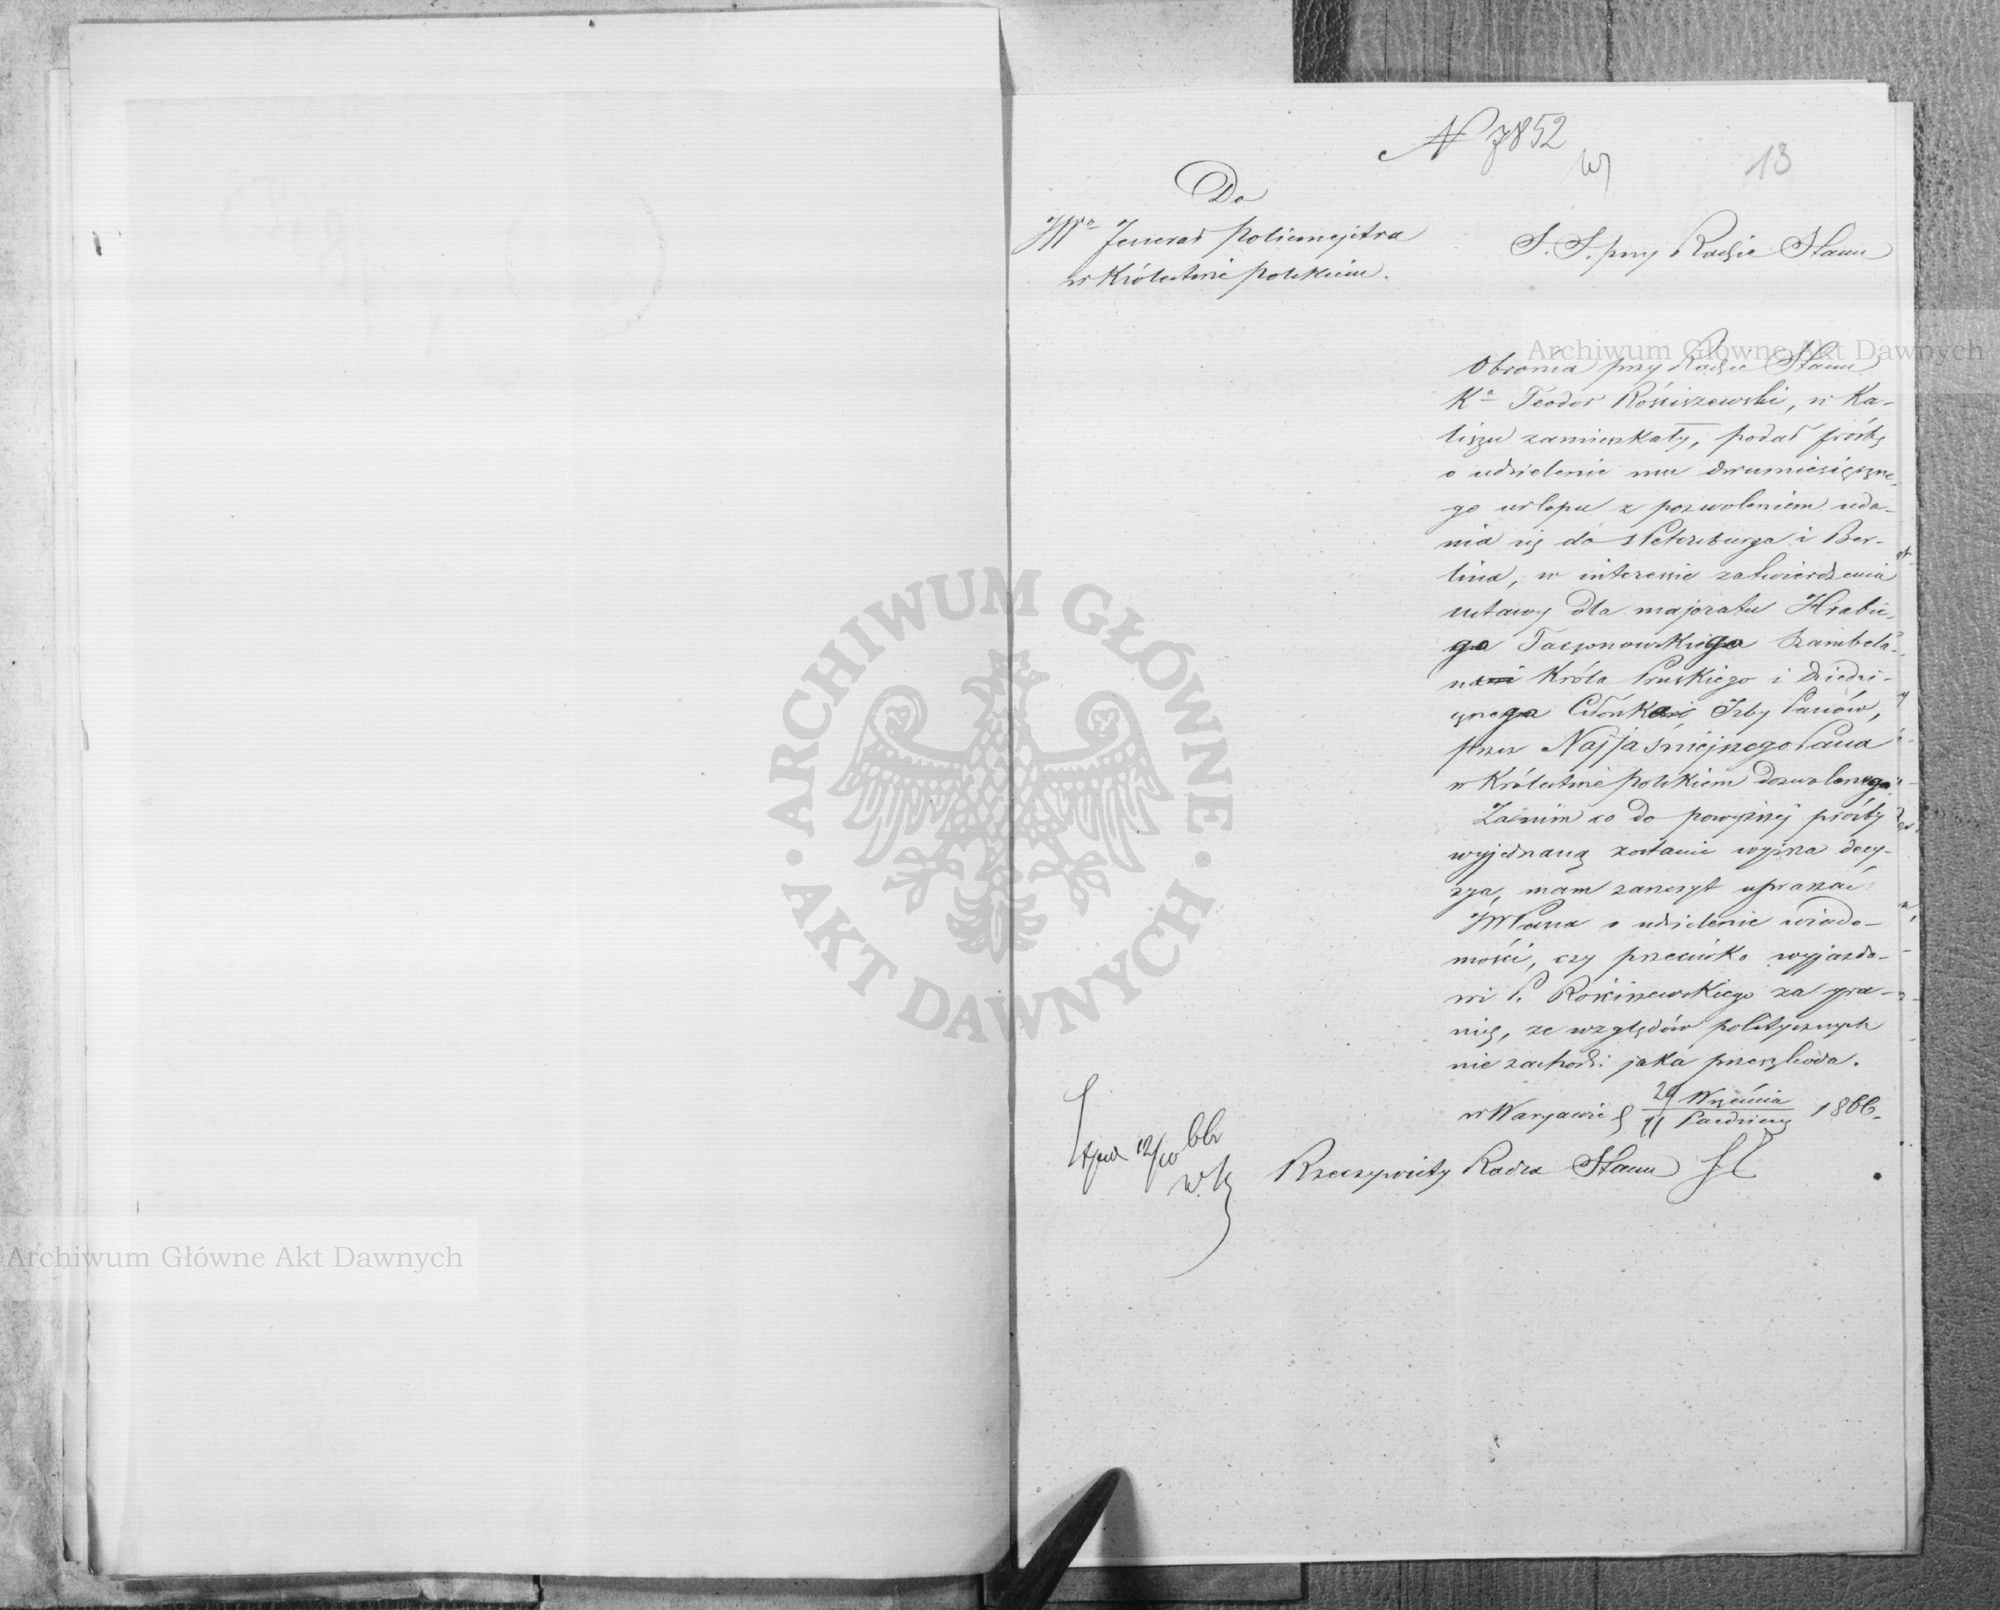 N 7852
13
Do
JWo Jenerał Policmajstra
w Królestwie Polskiem.
S. S. przy Radzie Stanu
Obrońca przy Radzie Stanu
Ka Teodor Rościszewski, w Ka-
liszu zamieszkały, podał prośbę
o udzielenie mu dwumiesięczne-
go urlopu z pozwoleniem uda-
nia się do Petersburga i Ber-
lina, w interesie zatwierdzenia
ustawy dla majoratu Hrabie-
go Taczanowskiego Szambela-
na Króla Pruskiego i dziedzi-
cznego Członka Izby Panów,
przez Najjaśniejszego Pana
w Królestwie Polskiem dozwolonego.
Zanim co do powyższej prośby
wyjednaną zostanie wyższa decy-
zya, mam zaszczyt upraszać
JWPana o udzielenie wiado-
mości, czy przeciwko wyjazdo-
wi P. Rościszewskiego za gra-
nicę, ze względów politycznych
nie zachodzi jaka przeszkoda.
w Warszawie d 29 Września
11 Paździer 1866.
12/10 66r
Rzeczywisty Radca Stanu
ARCHIWUM GŁÓWNE
AKT DAWNYCH
Archiwum Główne Akt Dawnych
Archiwum Główne Akt Dawnych